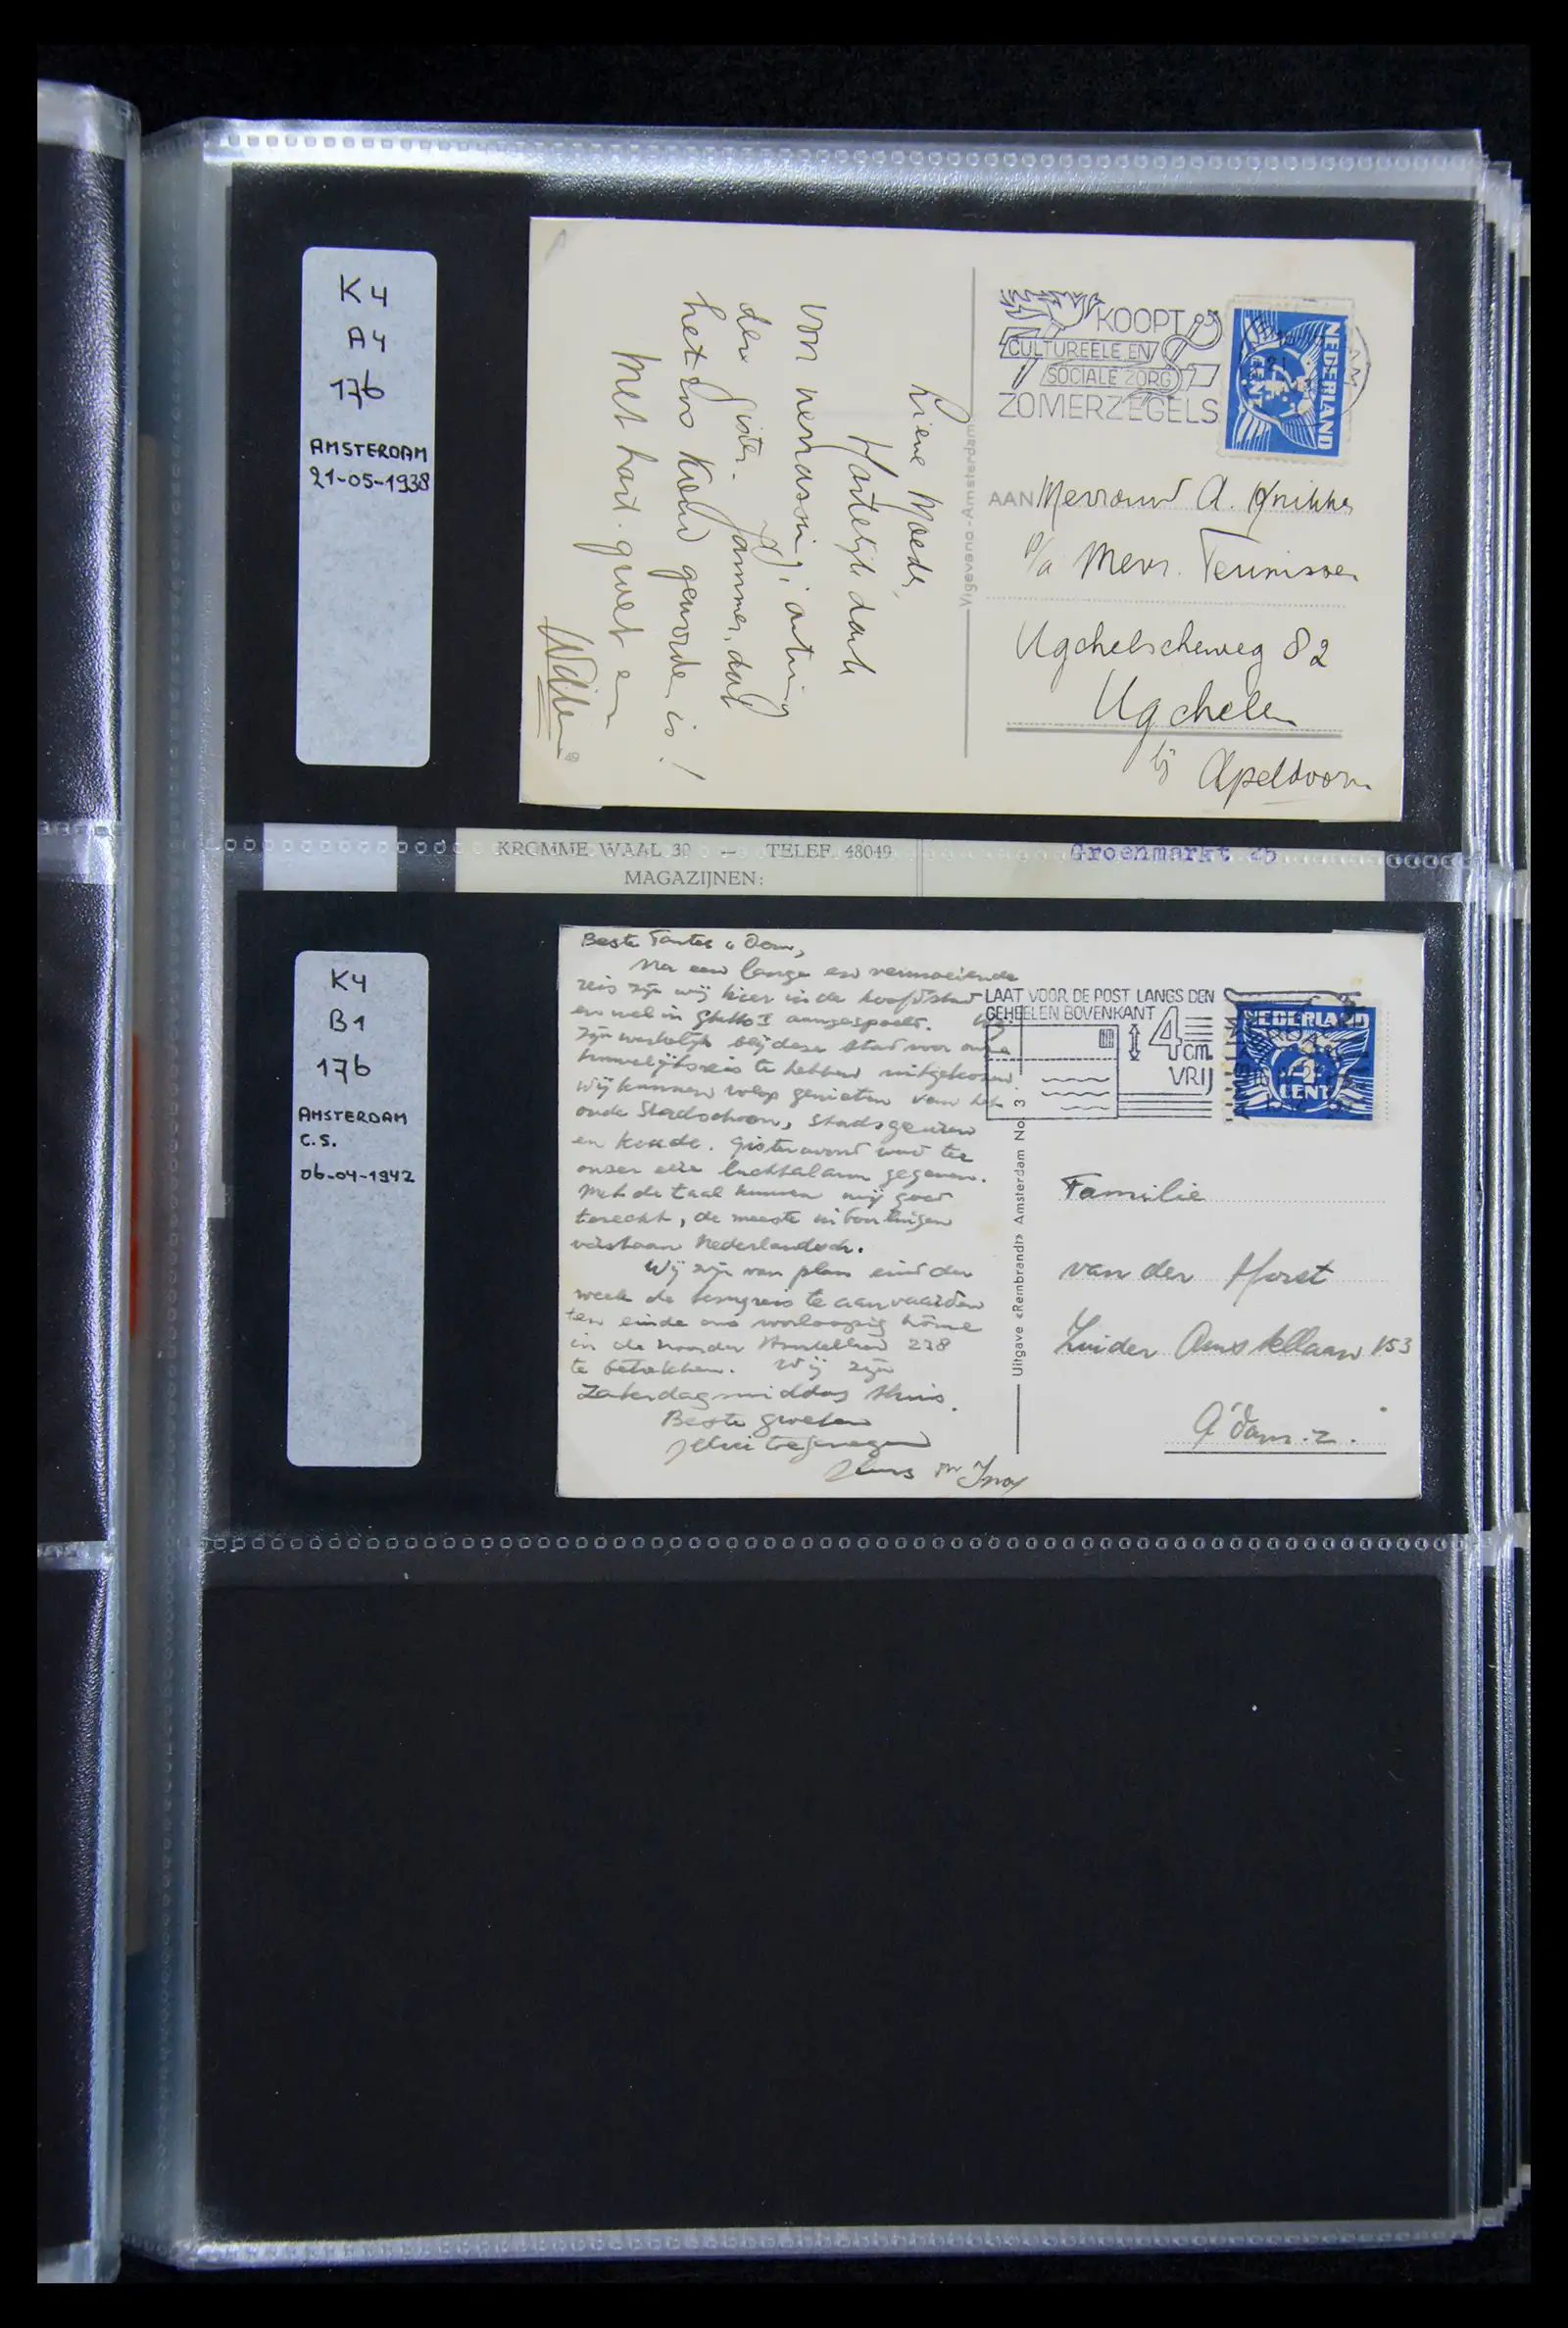 K4
A4
176
AMSTERDAM
21-05-1938
KOOPT
CULTUREELE EN
SOCIALE ZORG
ZOMERZEGELS
NEDERLAND
CENT
Lieve Moeder,
Hartelijk dank
voor
gister. Jammer, dat
het zoo koud geworden is!
Met hart. groet en
Willem
Vigeveno - Amsterdam
AAN Mevrouw A.
p/a Mevr. Teunissen
Ugchelscheweg 82
Ugchelen
bij Apeldoorn
KROMME WAAL 30 — TELEF. 48049
MAGAZIJNEN:
Groenmarkt 25
K4
B1
176
AMSTERDAM
C.S.
06-04-1942
Beste Tantes & Oom,
Na een lange en vermoeiende
reis zijn wij hier in de hoofdstad
en wel in Ghetto I aangespoeld. Wij
zijn werkelijk blij deze stad voor onze
huwelijksreis te hebben uitgekozen.
Wij kunnen volop genieten van het
oude Stadschoon, stadsgeuren
en koude. Gisteravond werd te
onzer eere luchtalarm gegeven.
Met de taal kunnen wij goed
terecht, de meeste inboorlingen
verstaan Nederlandsch.
Wij zijn van plan eind der
week de terugreis te aanvaarden
ten einde ons voorloopig home
in de Noorder Amstellaan 238
te betrekken. Wij zijn
Zaterdagmiddag thuis.
Beste groeten
toegenegen
LAAT VOOR DE POST LANGS DEN
GEHEELEN BOVENKANT
4 cm.
VRIJ
NEDERLAND
2
CENT
Uitgave «Rembrandt» Amsterdam No. 3
Familie
van der Horst
Zuider Amstellaan 153
A'dam. Z.